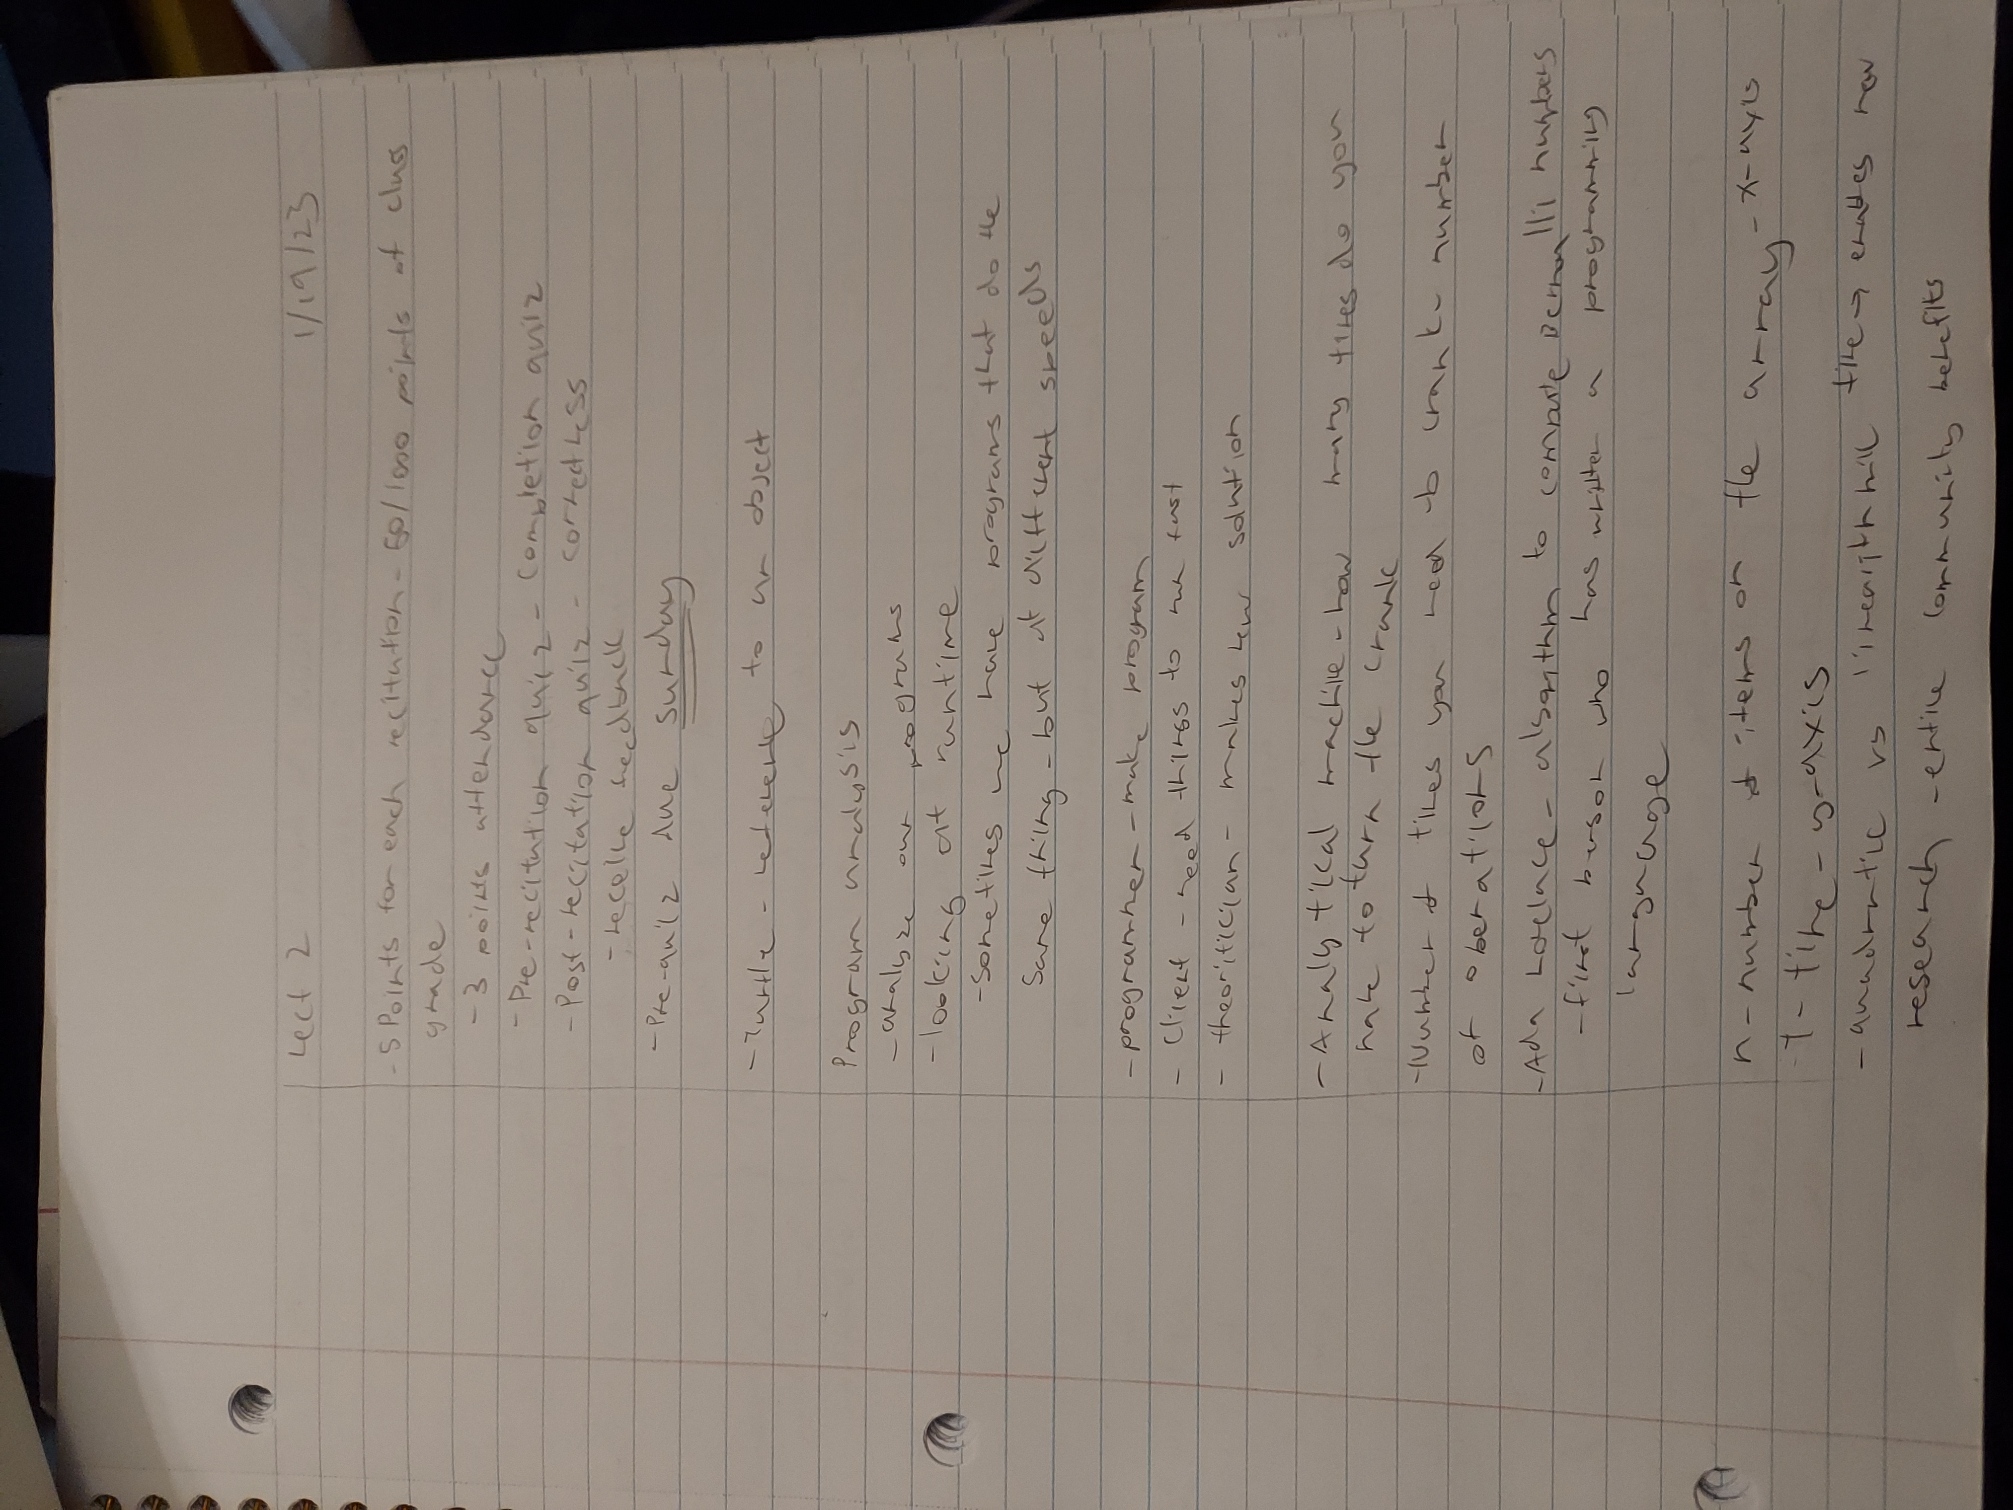 Lect 2 1/19/23
- 5 Points for each recitation - 50/1000 points of class
grade
- 3 points attendance
- Pre-recitation quiz - completion quiz
- Post-recitation quiz - correctness
- receive feedback
- Pre-quiz due Sunday
- Turtle - reference to an object
Program analysis
- analyze our programs
- looking at runtime
- Sometimes we have programs that do the
same thing - but at different speeds
- programmer - make program
- Client - need things to run fast
- theoritician - makes new solution
- Analytical machine - how many times do you
have to turn the crank
- Number of times you need to crank - number
of operations
- Ada Lovelace - algorithm to compute Bernoulli numbers
- first person who has written a programming
language
n - number of items on the array - x-axis
T - time - y-axis
- quadratic vs linearithmic time → enables new
research - entire community benefits